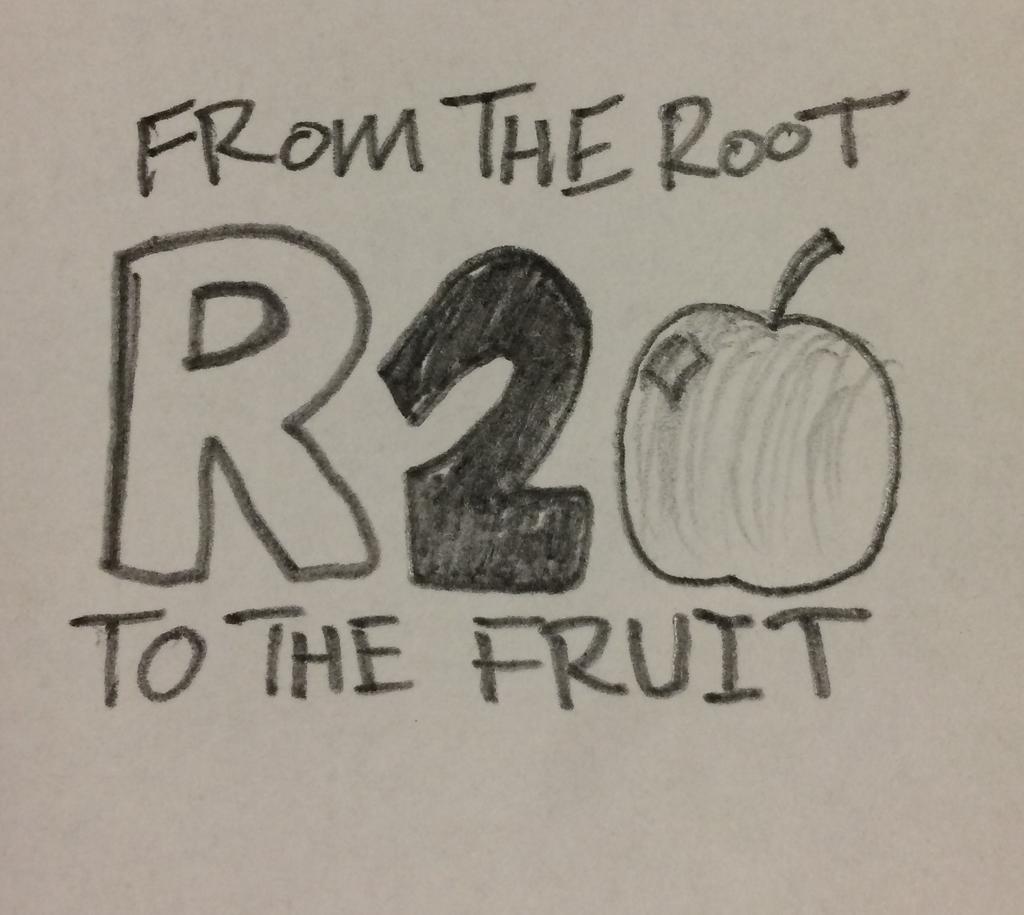 FROM THE ROOT
R2
TO THE FRUIT